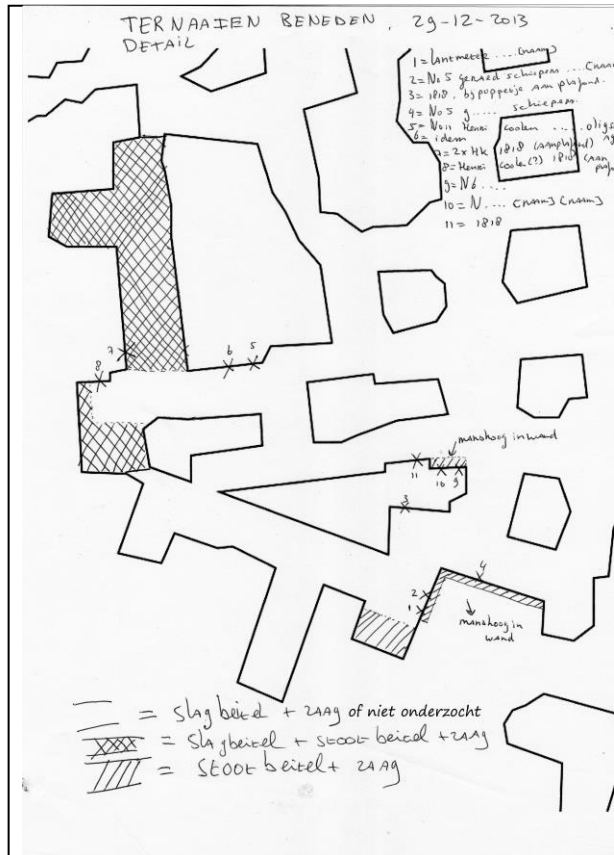 TERNAAIEN BENEDEN. 29-12-2013
DETAIL
1 = Lantmeter .... (naam)
2 = No 5 geraed schiepers .... (naam
3 = 1818, bij poppetje aan plafond.
4 = No 5 g ..... schiepers.
5 = No 11 Henri coolen ..... oligs
6 = idem
7 = 2x HK 1818 (aan plafond)
8 = Henri coolen(?) 1810 (aan
9 = N6 ....
10 = N .... (naam) (naam)
11 = 1818
7
6
5
8
manshoog in wand
11
10
9
3
4
2
1
manshoog in
wand
= slagbeitel + zaag of niet onderzocht
= slagbeitel + stoot beitel + zaag
= stoot beitel + zaag